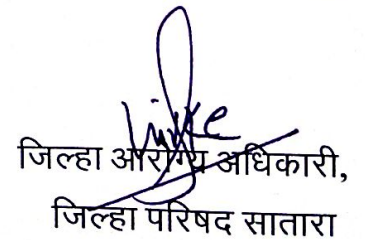 जिल्हा आरोग्य अधिकारी,
जिल्हा परिषद सातारा